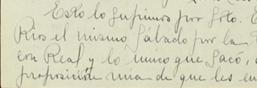 Esto lo supimos por Gto. E
Rios el mismo Sábado por la
con Real y lo único que sacó,
proposición una de que les en